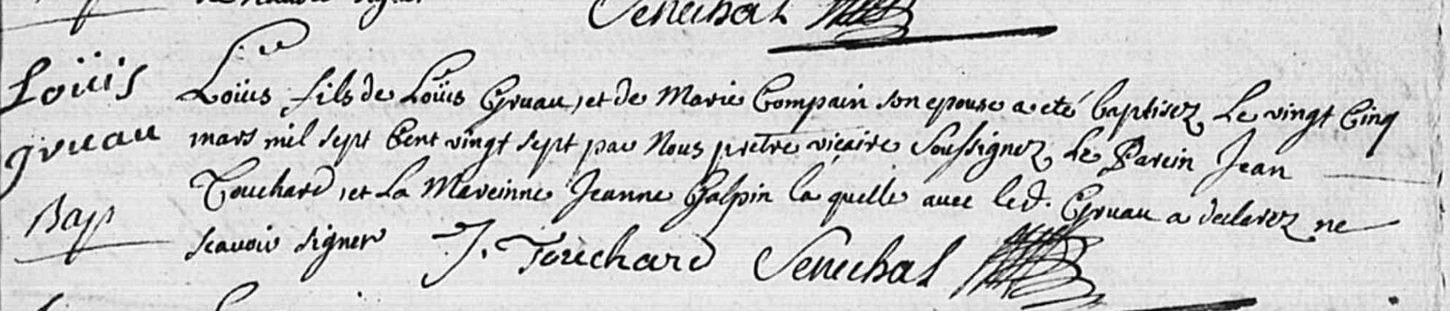 Senechal
Loüis
gruau
Bap
Loüis fils de Loüis Gruau, et de Marie Compain son epouse a eté baptisez Le vingt Cinq
mars mil sept Cent vingt sept par Nous prêtre vicaire Soussignez, Le Parein Jean
Touchard, et La Mareinne Jeanne Galpin la quelle avec led. Gruau a declarez ne
scavoir signer J. Touchard Senechal